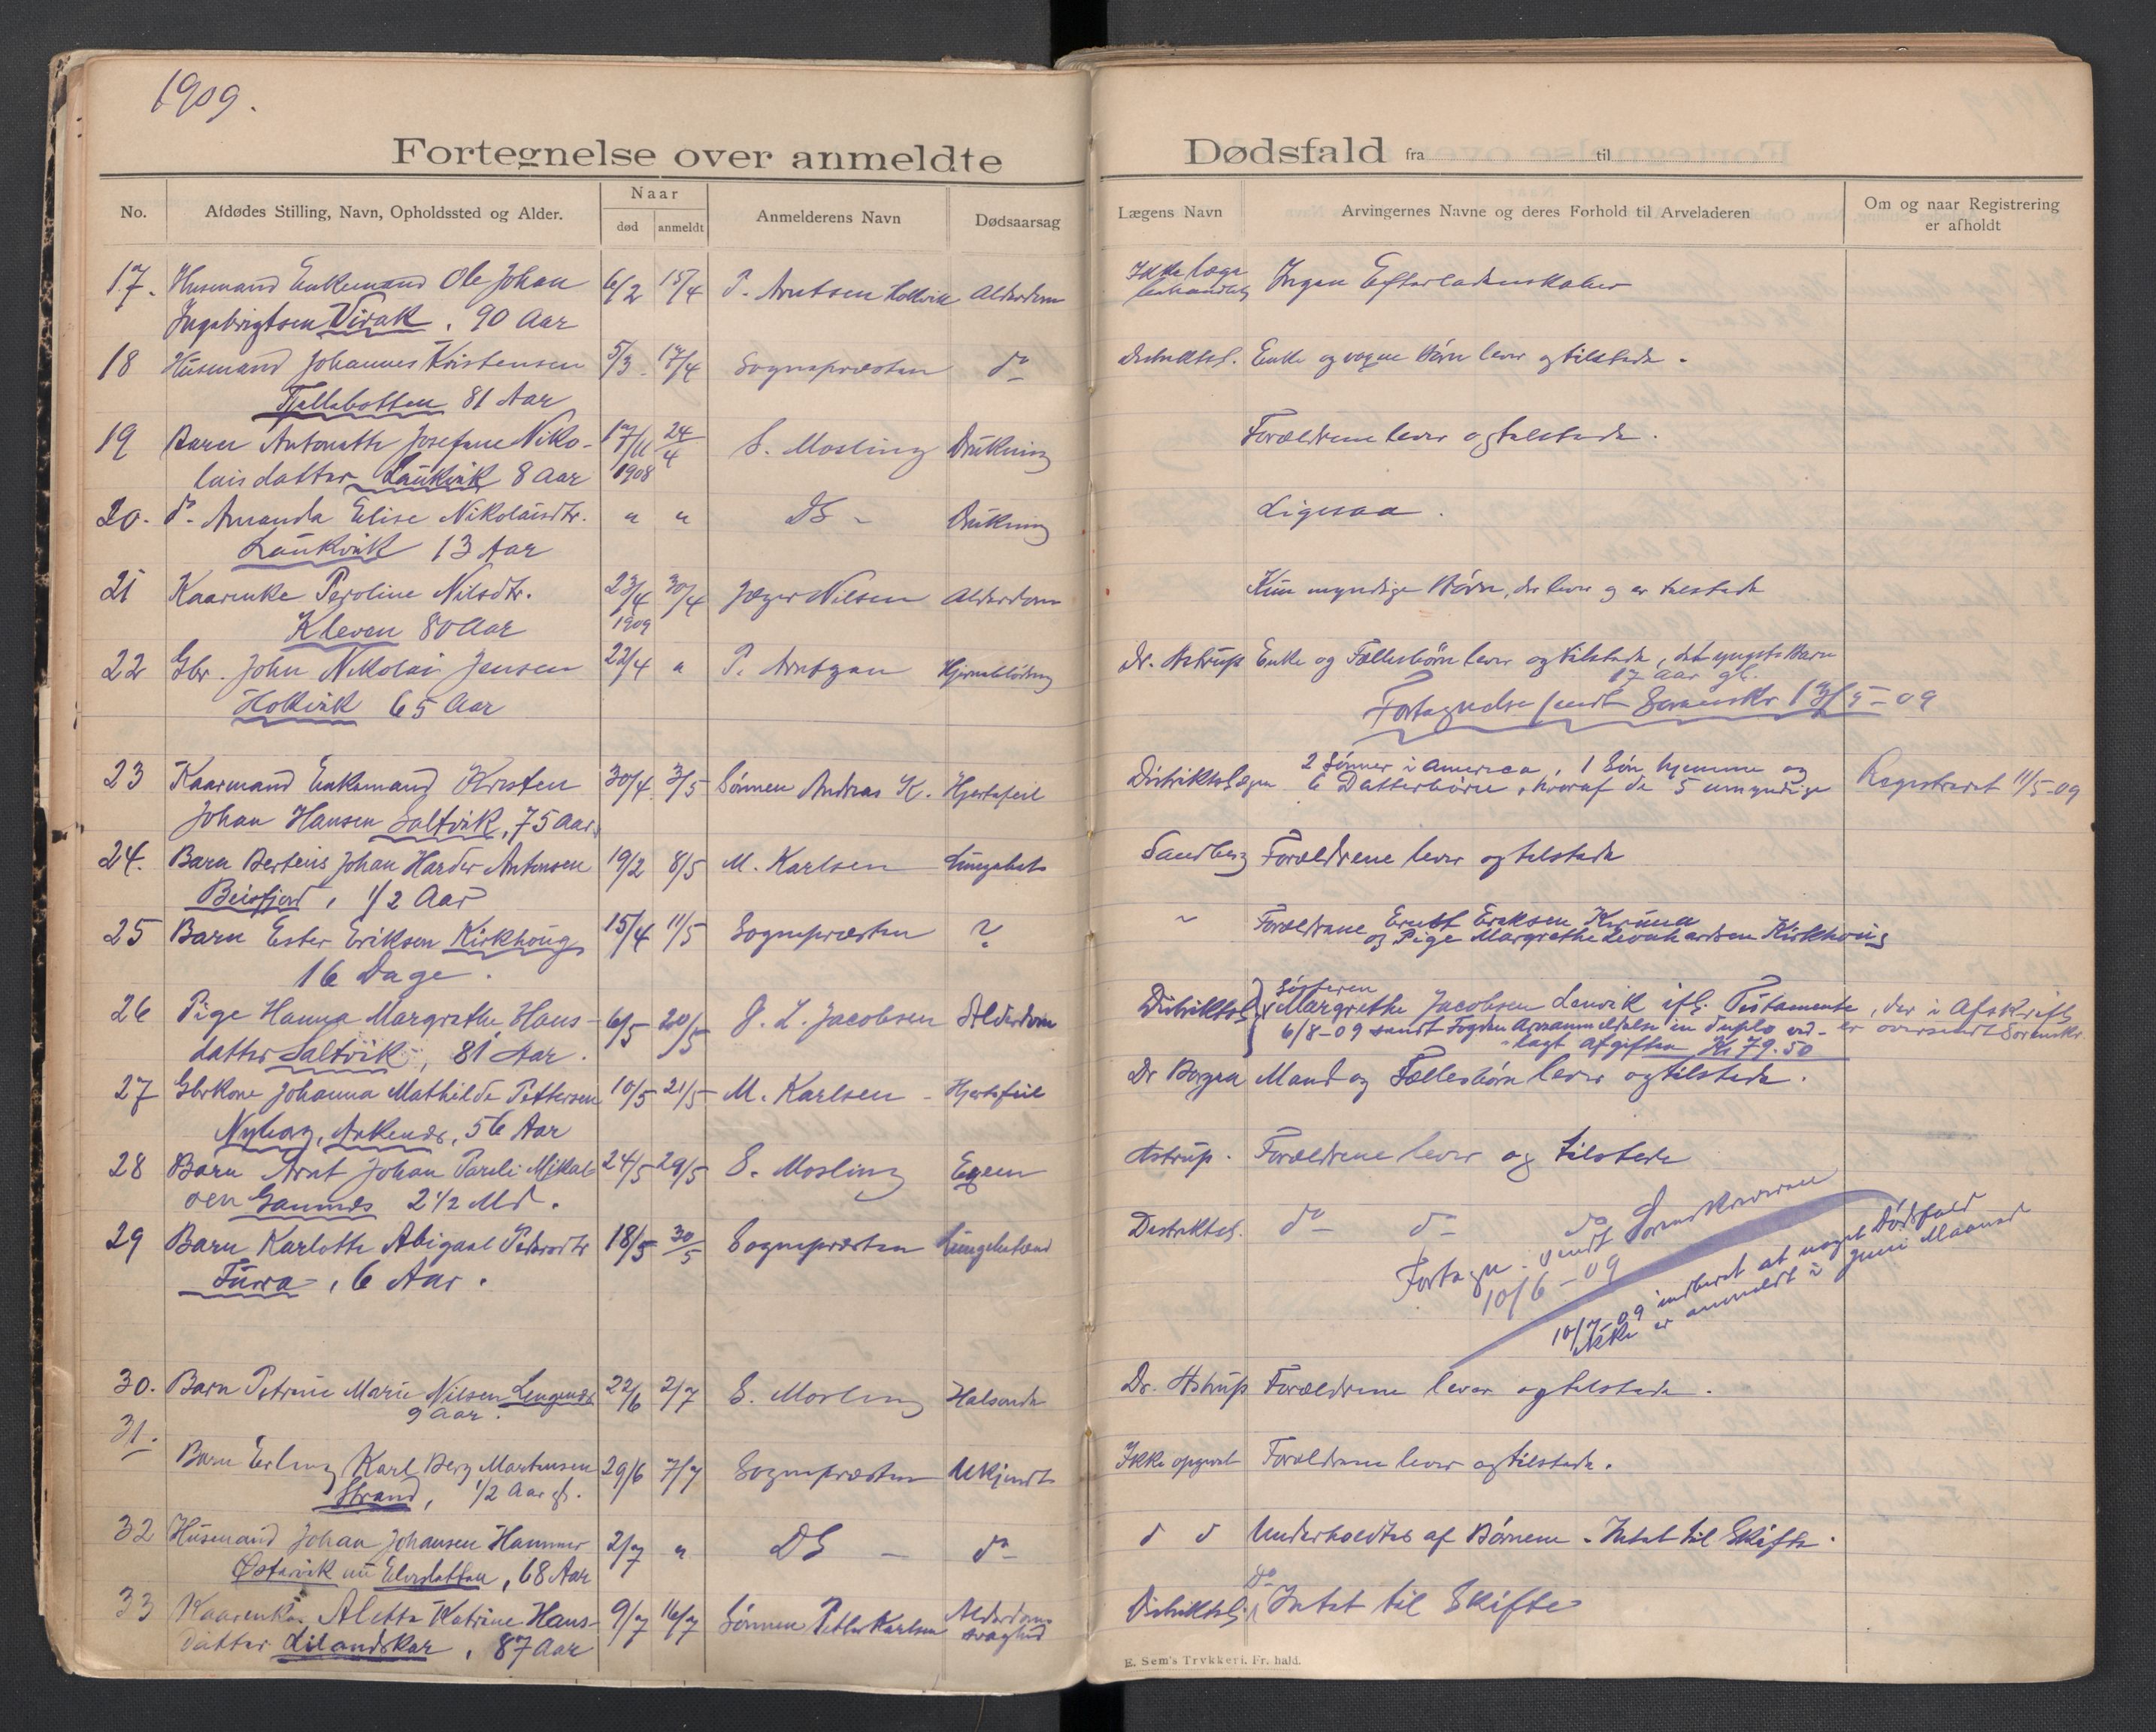 1909.
Fortegnelse over anmeldte Dødsfald fra til
No. Afdødes Stilling, Navn, Opholdssted og Alder. Naar død anmeldt Anmelderens Navn Dødsaarsag Lægens Navn Arvingernes Navne og deres Forhold til Arveladeren Om og naar Registrering er afholdt
17. Husmand Enkemand Ole Johan 6/2 15/4 P. Arntsen Holkvik Alderdom Ikke læge Ingen Efterladenskaber
Ingebrigtsen Virak. 90 Aar behandlet
18 Husmand Johannes Kristensen 5/3 17/4 Sognepræsten do Distriktsl. Enke og voxne Børn lever og tilstede.
Fjellebotten 81 Aar
19 Barn Antonette Josefine Niko- 17/11 24/4 S. Mosling Drukning Forældrene lever og tilstede.
lais datter Laukvik 8 Aar 1908
20. do. Amanda Elise Nikolaisdtr. " " DS - Drukning Ligesaa.
Laukvik 13 Aar
21 Kaarenke Peroline Nilsdtr. 23/4 30/4 Jæger Nilsen Alderdom Kun myndige Børn, der lever og er tilstede
Kleven 80 Aar 1909
22 Gbr. John Nikolai Jensen 22/4 " P. Arntzen Hjerneblødning Dr. Astrup Enke og Fællesbørn lever og tilstede, det yngste Barn
Holkvik 65 Aar 17 Aar gl.
Fortegnelse sendt Sorenskr 13/5-09
23 Kaarmand Enkemand Kristen 30/4 3/5 Sønnen Andreas K. Hjertefeil Distriktslægen 2 Sønner i America, 1 Søn hjemme og Registreret 11/5-09
Johan Hansen Saltvik, 75 Aar. 6 Datterbørn, hvoraf de 5 umyndige
24. Barn Berteus Johan Harder Antonsen 19/2 8/5 M. Karlsen Lungebet. Sandberg Forældrene lever og tilstede
Beisfjord, 1/2 Aar
25 Barn Ester Eriksen Kirkhoug 15/4 11/5 Sognepræsten ? " Forældrene Ernst Eriksen Kiruna
16 Dage. og Pige Margrethe Leonhardsen Kirkhoug
26 Pige Hanna Margrethe Hans- 6/5 20/5 J. L. Jacobsen Alderdom Distriktsl. Søsteren Margrethe Jacobsen Lenvik ifl. Testamente, der i Afskrift
datter Saltvik, 81 Aar. 6/8-09 sendt Fogden Arveanmeldelse in duplo ved- er oversendt Sorenskr.
lagt Afgiften Kr 79.50
27 Gbrkone Johanna Mathilde Pettersen 10/5 21/5 M. Karlsen - Hjertefeil Dr Borgen Mand og Fællesbørn lever og tilstede.
Nyborg, Ankenes, 56 Aar
28 Barn Arnt Johan Pareli Mikal- 24/5 29/5 S. Mosling Exem Astrup. Forældrene lever og tilstede
sen Gammes 2 1/2 Md.
29 Barn Karlotte Abigael Pedersdtr 18/5 30/5 Sognepræsten Lungebetænd Distriktsl. do do do
Furra, 6 Aar.
Fortegn. sendt Sorenskriveren
10/6-09
10/7-09 indberet at noget Dødsfald
ikke er anmeldt i Juni Maaned
30. Barn Petrine Marie Nilsen Lengenes 22/6 2/7 S. Mosling Halsonde Dr. Astrup Forældrene lever og tilstede.
9 Aar.
31.
Barn Erling Karl Berg Martinsen 29/6 7/7 Sognepræsten Ukjendt Ikke opgivet Forældrene lever og tilstede.
Strand, 1/2 Aar gl.
32 Husmand Johan Johansen Hammer 2/7 " DS - do d d Underholdtes af Børnene. Intet til Skifte.
Østervik nu Elveslotten, 68 Aar
33 Kaarenke. Aletta Katrine Hans- 9/7 16/7 Sønnen Petter Karlsen Alderdoms Distriktsl. do Intet til Skifte
datter Lilandskar, 87 Aar svaghed
E. Sem's Trykkeri. Fr. hald.